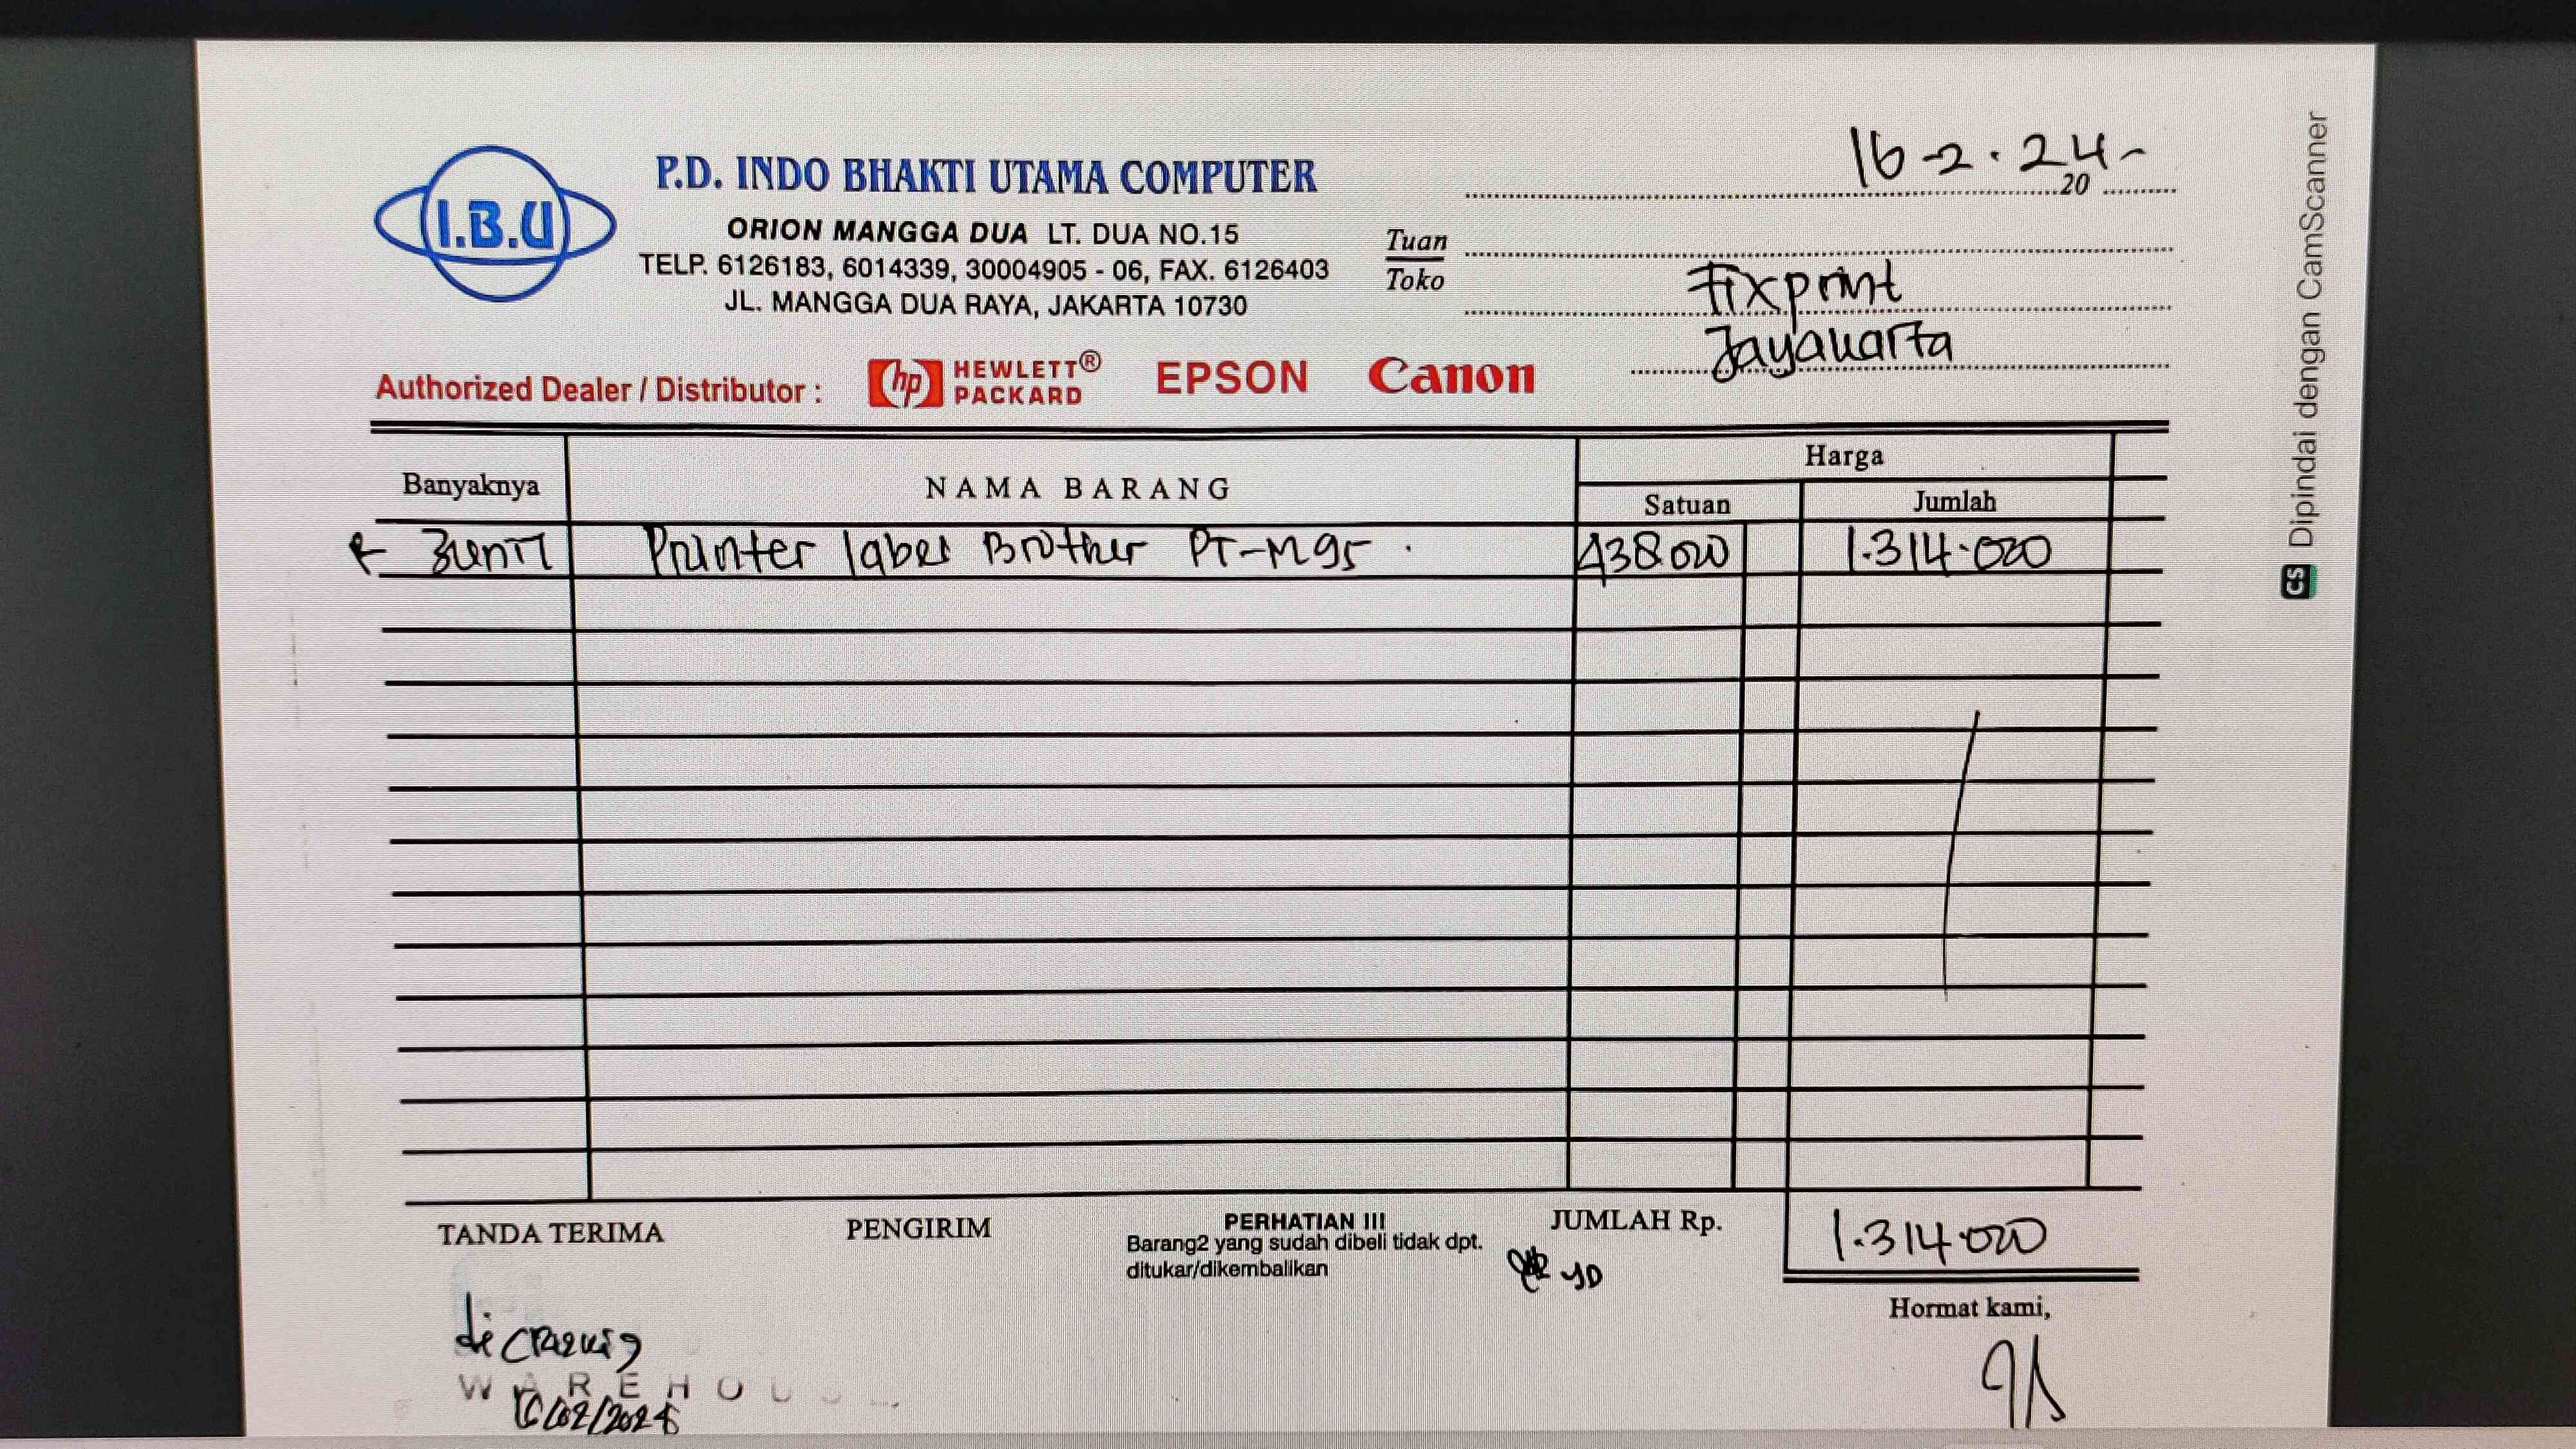 I.B.U
P.D. INDO BHAKTI UTAMA COMPUTER
ORION MANGGA DUA LT. DUA NO.15
TELP. 6126183, 6014339, 30004905 - 06, FAX. 6126403
JL. MANGGA DUA RAYA, JAKARTA 10730
16-2.24-
20
Tuan
Toko
Fixprint
Jayakarta
Authorized Dealer / Distributor : hp HEWLETT® PACKARD EPSON Canon
Banyaknya NAMA BARANG Harga
Satuan Jumlah
3unit Printer label Brother PT-M95 438000 1.314.000
TANDA TERIMA PENGIRIM PERHATIAN III JUMLAH Rp. 1.314.000
Barang2 yang sudah dibeli tidak dpt.
ditukar/dikembalikan
Hormat kami,
WAREHOUS
16/02/2024
CS Dipindai dengan CamScanner